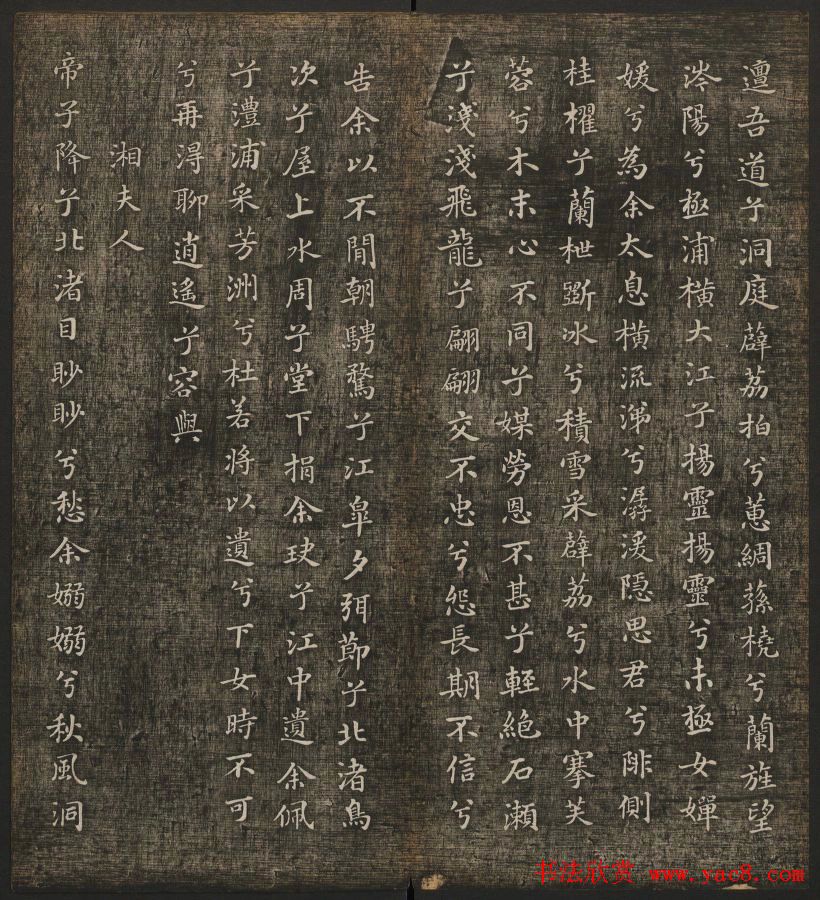 邅吾道兮洞庭薜荔拍兮蕙綢蓀橈兮蘭旌望
涔陽兮極浦橫大江兮揚靈揚靈兮未極女嬋
媛兮為余太息橫流涕兮潺湲隱思君兮陫側
桂櫂兮蘭枻斲冰兮積雪采薜荔兮水中搴芙
蓉兮木末心不同兮媒勞恩不甚兮輕絕石瀨
兮淺淺飛龍兮翩翩交不忠兮怨長期不信兮
告余以不閒朝騁騖兮江皐夕弭節兮北渚鳥
次兮屋上水周兮堂下捐余玦兮江中遺余佩
兮澧浦采芳洲兮杜若將以遺兮下女時不可
兮再淂聊逍遙兮容與
湘夫人
帝子降兮北渚目眇眇兮愁余嫋嫋兮秋風洞
书法欣赏 www.yac8.com